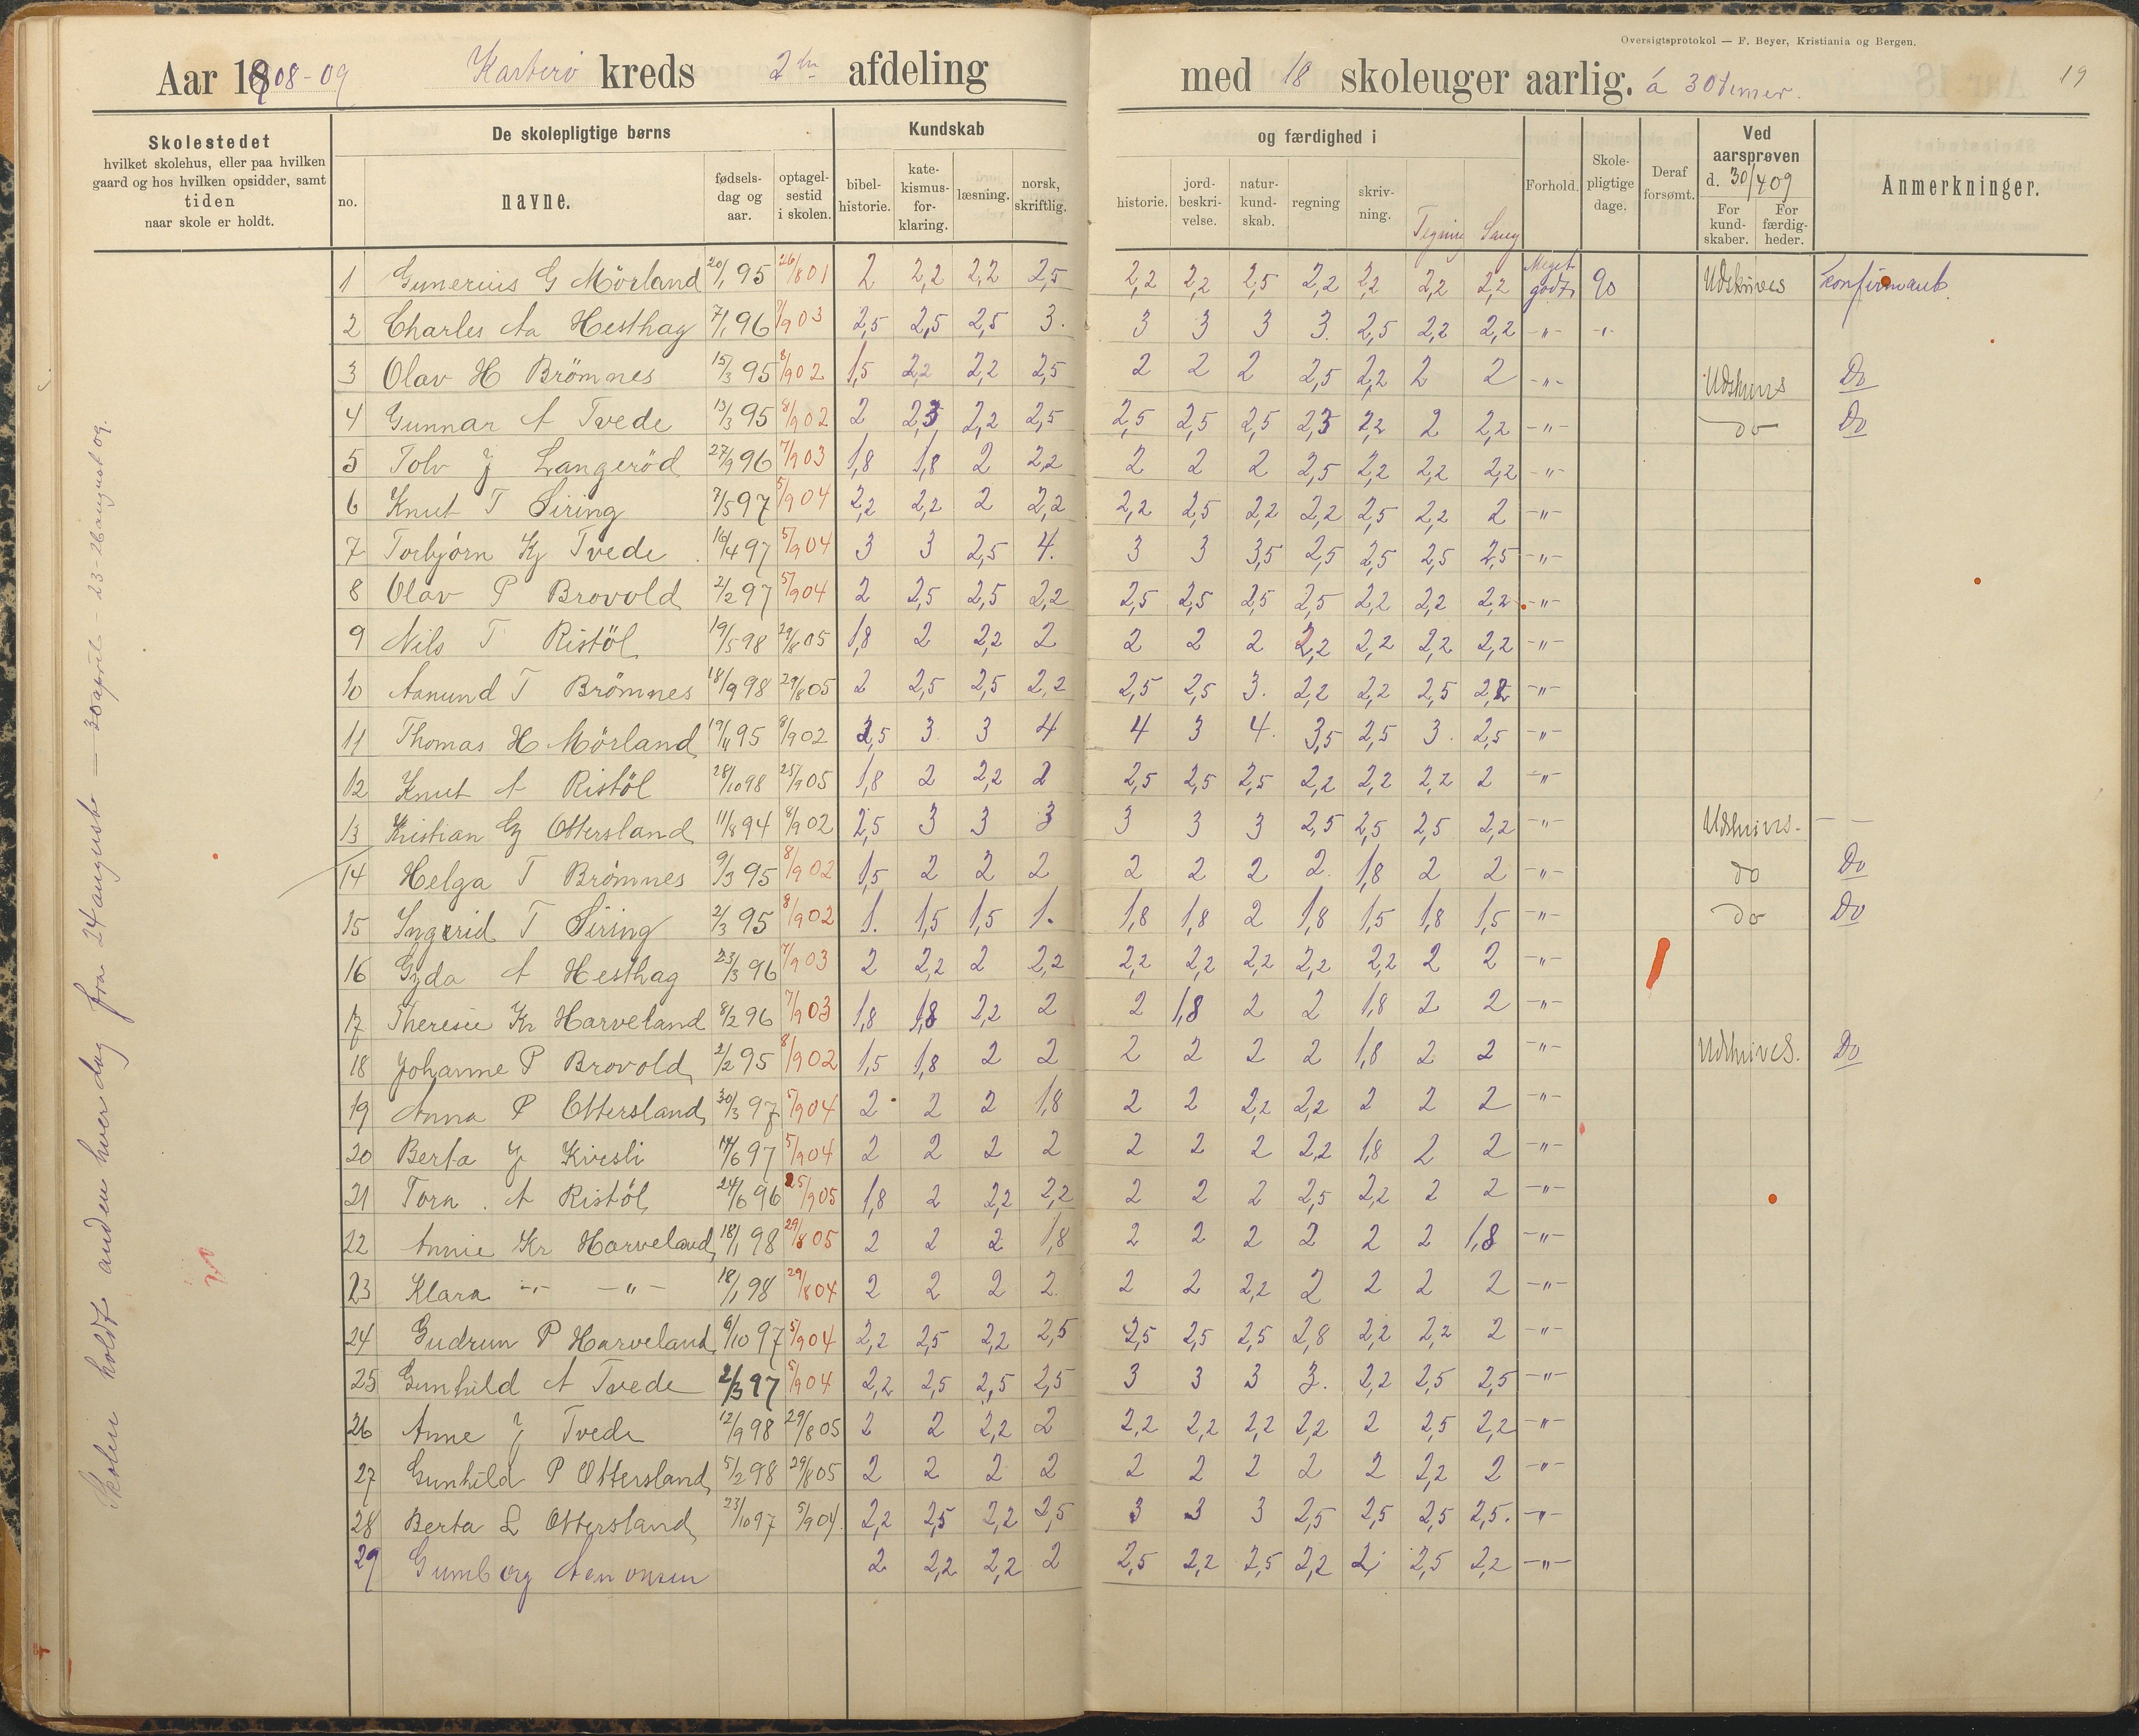 Oversigtsprotokol — F. Beyer, Kristiania og Bergen.
Aar 1908-09 kreds 2 afdeling med 18 skoleuger aarlig. á 30 timer. 19
Skolestedet
hvilket skolehus, eller paa hvilken
gaard og hos hvilken opsidder, samt
tiden
naar skole er holdt.
De skolepligtige børns
no.
navne.
fødsels-
dag og
aar.
optagel-
sestid
i skolen.
Kundskab og færdighed i
bibel-
historie.
kate-
kismus-
for-
klaring.
læsning.
norsk,
skriftlig.
historie.
jord-
beskri-
velse.
natur-
kund-
skab.
regning
skriv-
ning.
Tegning
Sang
Forhold.
Skole-
pligtige
dage.
Deraf
forsømt.
Ved
aarsprøven
d. 30/4 09
For
kund-
skaber.
For
færdig-
heder.
Anmerkninger.
Skolen holdt anden hver dag fra 24 august – 30 april – 23-26 august 09.
1 Gunerius G Mörland 20/1 95 26/8 01 2 2,2 2,2 2,5 2,2 2,2 2,5 2,2 2,2 2,2 2,2 Meget godt 90 Udskrives Konfirmant
2 Charles Aa Hesthag 7/1 96 7/9 03 2,5 2,5 2,5 3. 3 3 3 3. 2,5 2,2 2,2 -"- -"-
3 Olav H Brömnes 15/3 95 8/9 02 1,5 2,2 2,2 2,5 2 2 2 2,5 2,2 2 2 -"- Udskrives Do
4 Gunnar A Tvede 13/3 95 8/9 02 2 2,3 2,2 2,5 2,5 2,5 2,5 2,3 2,2 2 2,2 -"- do Do
5 Tolv J Langeröd 27/9 96 7/9 03 1,8 1,8 2 2,2 2 2 2 2,5 2,2 2,2 2,2 -"-
6 Knut T Siring 7/5 97 5/9 04 2,2 2,2 2 2,2 2,2 2,5 2,2 2,2 2,5 2,2 2 -"-
7 Torbjörn Kj Tvede 16/4 97 5/9 04 3 3 2,5 4. 3 3 3,5 2,5 2,5 2,5 2,5 -"-
8 Olav P Brovold 2/2 97 5/9 04 2 2,5 2,5 2,2 2,5 2,5 2,5 2,5 2,2 2,2 2,2 -"-
9 Nils T Ristöl 19/5 98 29/8 05 1,8 2 2,2 2 2 2 2 2,2 2,2 2,2 2,2 -"-
10 Aanund T Brömnes 18/9 98 29/8 05 2 2,5 2,5 2,2 2,5 2,5 3. 2,2 2,2 2,5 2,2 -"-
11 Thomas H Mörland 19/11 95 8/9 02 2,5 3 3 4 4 3 4. 3,5 2,5 3. 2,5 -"-
12 Knut A Ristöl 28/10 98 25/9 05 1,8 2 2,2 2 2,5 2,5 2,5 2,2 2,2 2,2 2 -"-
13 Kristian G Ottersland 11/8 94 8/9 02 2,5 3 3 3 3 3 3 2,5 2,5 2,5 2,2 -"- Udskrives. — —
14 Helga T Brömnes 9/3 95 8/9 02 1,5 2 2 2 2 2 2 2. 1,8 2 2 -"- do Do
15 Ingerid T Siring 2/3 95 8/9 02 1. 1,5 1,5 1. 1,8 1,8 2 1,8 1,5 1,8 1,5 -"- do Do
16 Gyda A Hesthag 23/3 96 7/9 03 2 2,2 2 2,2 2,2 2,2 2,2 2,2 2,2 2 2 -"-
17 Theresie Kr Harveland 8/2 96 7/9 03 1,8 1,8 2,2 2 2 1,8 2 2 1,8 2 2 -"-
18 Johanne P Brovold 2/2 95 8/9 02 1,5 1,8 2 2 2 2 2 2 1,8 2 2 -"- Udskrives. Do
19 Anna P Ottersland 30/3 97 5/9 04 2 2 2 1,8 2 2 2,2 2,2 2 2 2 -"-
20 Berta J Kvesli 14/6 97 5/9 04 2 2 2 2 2 2 2 2,2 1,8 2 2 -"-
21 Tora A Ristöl 24/6 96 25/9 05 1,8 2 2,2 2,2 2 2 2 2,5 2,2 2 2 -"-
22 Annie Kr Harveland 18/1 98 29/8 05 2 2 2 1,8 2 2 2 2 2 2 1,8 -"-
23 Klara -"- -"- 18/1 98 29/8 04 2 2 2 2. 2 2 2,2 2 2 2 2 -"-
24 Gudrun P Harveland 6/10 97 5/9 04 2,2 2,5 2,2 2,5 2,5 2,5 2,5 2,8 2,2 2,2 2 -"-
25 Gunhild A Tvede 2/3 97 5/9 04 2,2 2,5 2,5 2,5 3 3 3 3. 2,2 2,5 2,5 -"-
26 Anne J Tvede 12/9 98 29/8 05 2 2 2,2 2 2,2 2,2 2,2 2,2 2 2,5 2,2 -"-
27 Gunhild P Ottersland 5/2 98 29/8 05 2 2 2 2 2 2 2 2 2 2,2 2 -"-
28 Berta L Ottersland 23/10 97 5/9 04. 2,2 2,5 2,2 2,5 3 3 3 2,5 2,5 2,5 2,5. -"-
29 Gumborg 2 2,2 2,2 2 2,5 2,2 2,5 2,2 2 2,5 2,2 -"-